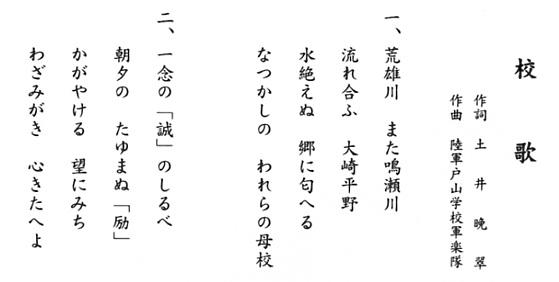 校歌
作詞　土井晩翠
作曲　陸軍戸山学校軍楽隊
一、荒雄川　また鳴瀬川
流れ合ふ　大崎平野
水絶えぬ　郷に匂へる
なつかしの　われらの母校
二、一念の「誠」のしるべ
朝夕の　たゆまぬ「励」
かがやける　望にみち
わざみがき　心きたへよ